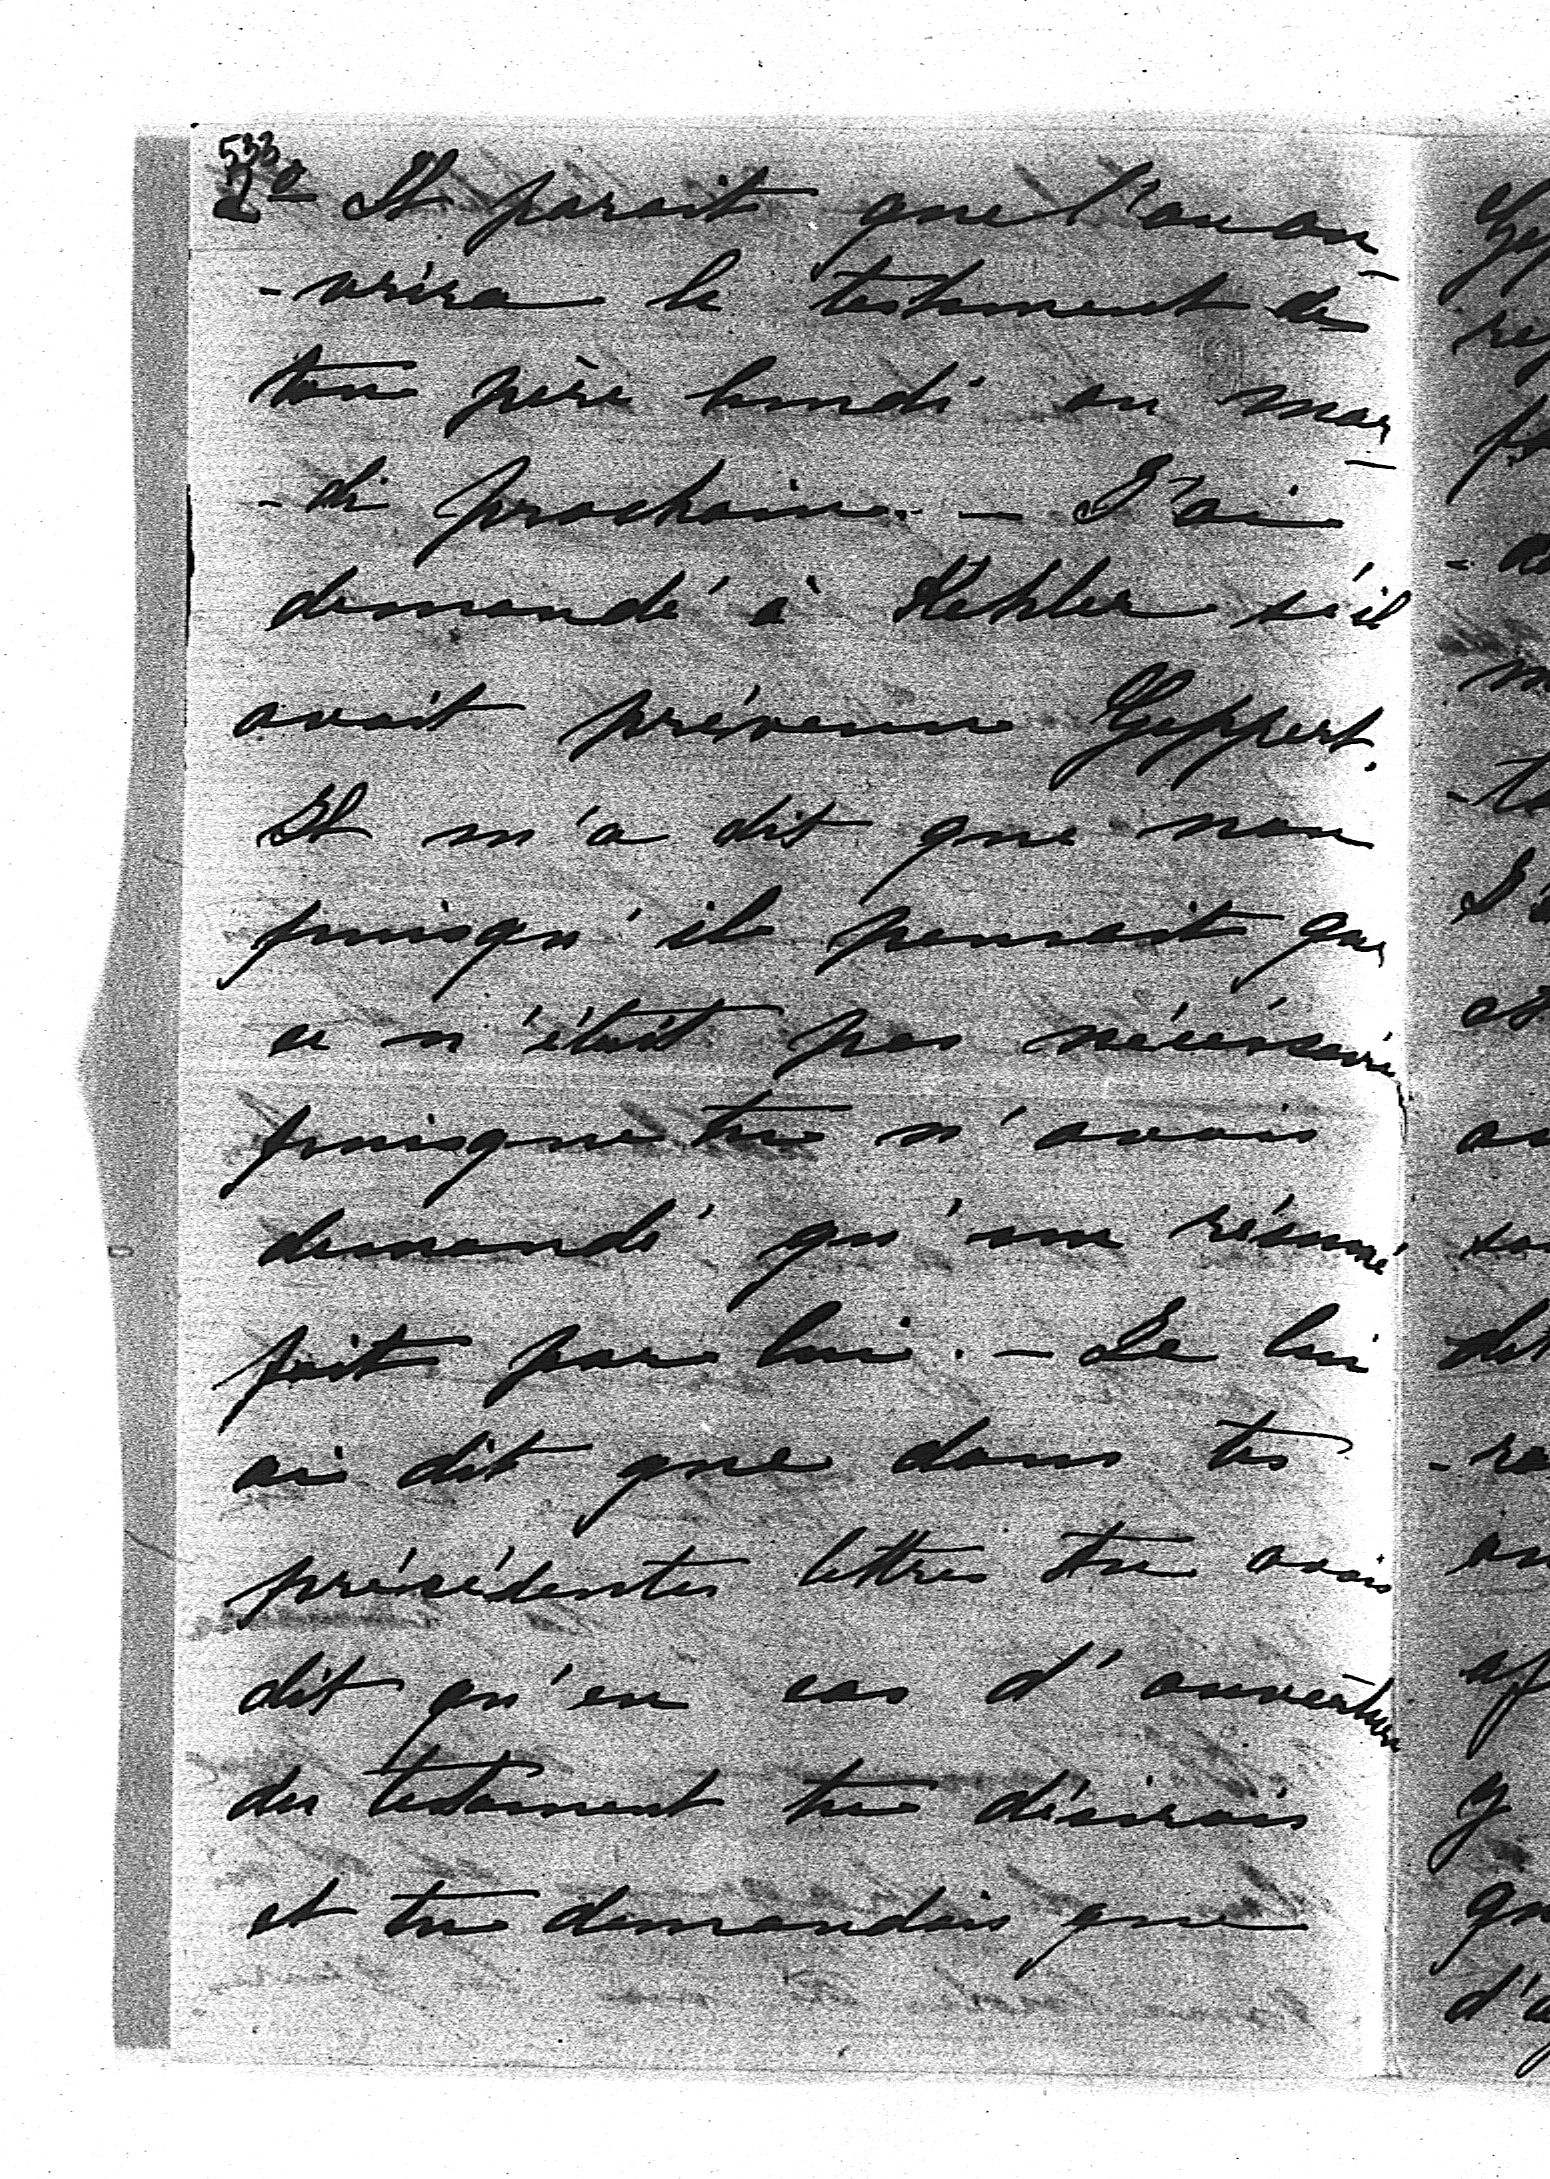 533
2º Il parait que l'on ou-
-vrira le testament de
ton père lundi ou mar-
-di prochain. - J'ai
demandé à Kehler s'il
avait prévenu Geppert.
Il m'a dit que non
puisqu'il pensait que
ce n'était pas nécéssaire
puisque tu n'avais
demandé qu'un résumé
fait par lui. - Je lui
ai dit que dans tes
précédentes lettres tu avais
dit qu'en cas d'ouverture
du testament tu désirais
et tu demandais que